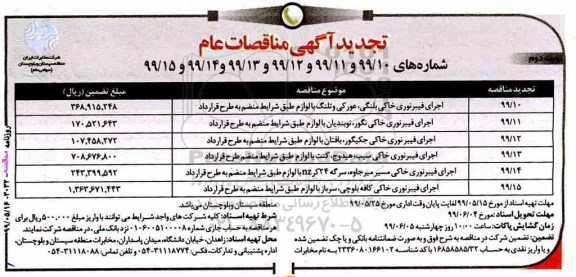 تجدید آگهی مناقصات عام
شماره‌های ۹۹/۱۰ و ۹۹/۱۱ و ۹۹/۱۲ و ۹۹/۱۳ و ۹۹/۱۴ و ۹۹/۱۵
نوبت دوم
شرکت مخابرات ایران
منطقه سیستان و بلوچستان
(سهامی عام)
تجدید مناقصه موضوع مناقصه مبلغ تضمین (ریال)
۹۹/۱۰ اجرای فیبرنوری خاکی پلنگی، عورکی و تلنگ با لوازم طبق شرایط منضم به طرح قرارداد ۳۶۸,۹۱۵,۲۴۸
۹۹/۱۱ اجرای فیبرنوری خاکی نگور، نوبندیان با لوازم طبق شرایط منضم به طرح قرارداد ۱۷۰,۵۲۱,۶۴۳
۹۹/۱۲ اجرای فیبرنوری خاکی جکیگور، بافتان با لوازم طبق شرایط منضم به طرح قرارداد ۱۰۷,۴۵۸,۲۷۲
۹۹/۱۳ اجرای فیبرنوری خاکی سیب، هیدوچ، کنت با لوازم طبق شرایط منضم به طرح قرارداد ۷۰۸,۶۷۶,۸۰۰
۹۹/۱۴ اجرای فیبرنوری خاکی مسیر میرجاوه، سرگه ۲۴کر nz با لوازم طبق شرایط منضم به طرح قرارداد ۲۴۳,۳۹۹,۵۹۲
۹۹/۱۵ اجرای فیبرنوری خاکی کافه بلوچی، سرباز با لوازم طبق شرایط منضم به طرح قرارداد ۱,۳۶۳,۶۷۱,۴۴۳
مهلت تهیه اسناد: از مورخ ۹۹/۰۵/۱۵ لغایت پایان وقت اداری مورخ ۹۹/۰۵/۲۵
مهلت تحویل اسناد: مورخ ۹۹/۰۶/۰۴
زمان گشایش پاکات: ساعت ۱۰:۰۰ روز چهارشنبه ۹۹/۰۶/۰۵
تضمین: تضمین شرکت در مناقصه به شرح فوق و به صورت ضمانتنامه بانکی و یا چک تضمین شده
و یا واریز نقدی به حساب ۱۶۸۵۸۵۸۵۳۲ با شناسه کد ۲۳۳۶۰۸۰۱۶۶۱۰۲ به نام مخابرات
منطقه سیستان و بلوچستان می‌باشد.
شرط تهیه اسناد: کلیه شرکت‌های واجد شرایط می توانند با واریز مبلغ ۵۰۰,۰۰۰ ریال برای
هر مناقصه به حساب جاری شماره ۰۱۰۶۰۰۵۱۰۰۰۰۸ نزد بانک ملی، در مناقصه شرکت نمایند.
محل تهیه اسناد: زاهدان، خیابان دانشگاه، میدان پاسداران، مخابرات منطقه سیستان و بلوچستان،
اداره پشتیبانی و تدارکات، فکس: ۰۵۴-۳۱۱۱۸۷۷۴ تماس: ۰۵۴-۳۱۱۱۸۰۸۸